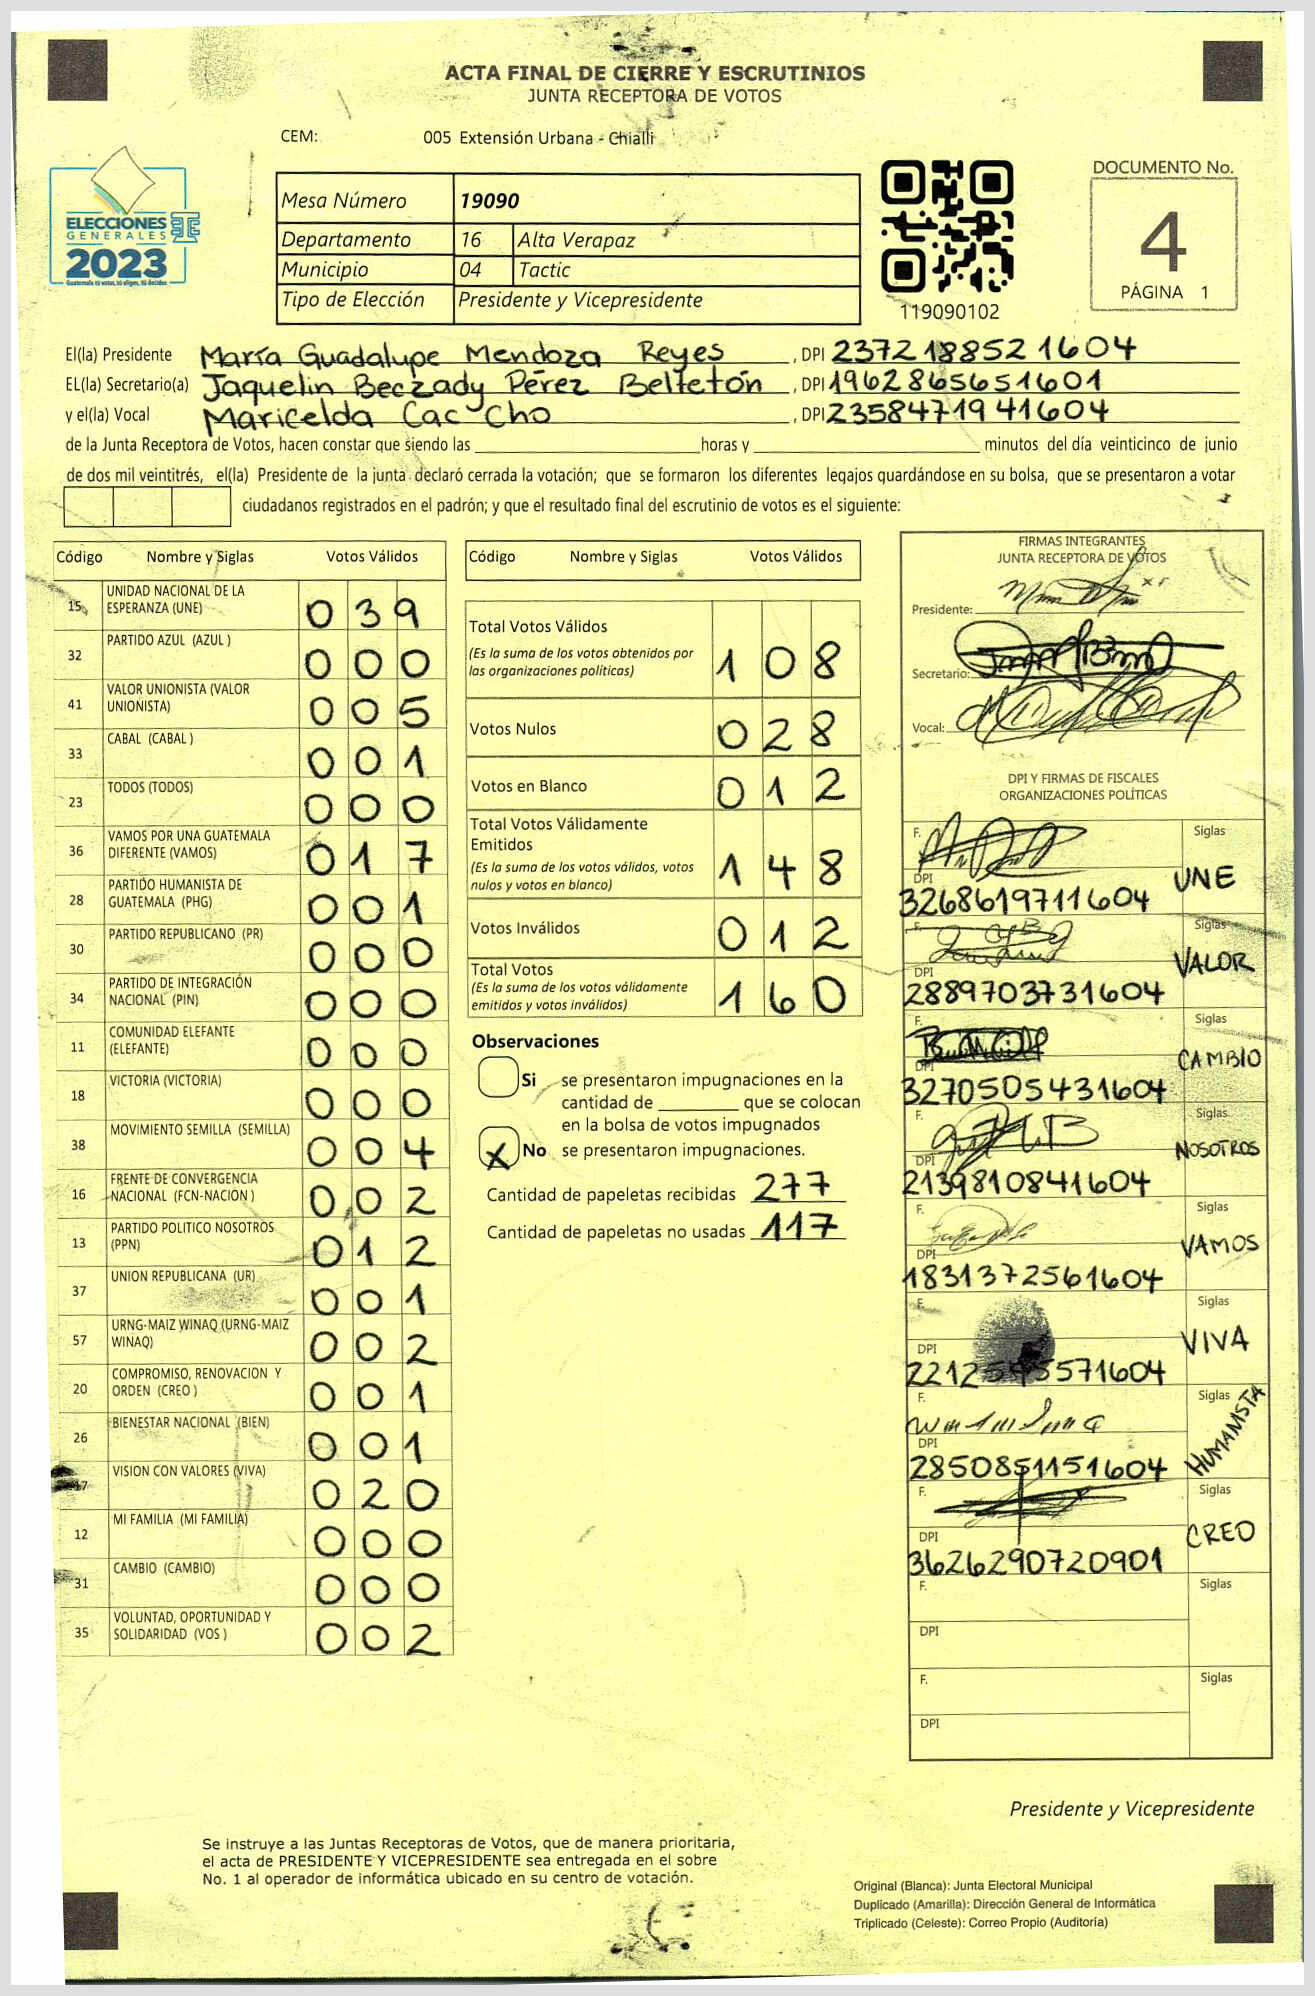 ACTA FINAL DE CIERRE Y ESCRUTINIOS
JUNTA RECEPTORA DE VOTOS
CEM: 005 Extensión Urbana - Chialli
ELECCIONES
GENERALES
2023
Guatemala tú votas, tú eliges, tú decides
Mesa Número 19090
Departamento 16 Alta Verapaz
Municipio 04 Tactic
Tipo de Elección Presidente y Vicepresidente
119090102
DOCUMENTO No.
4
PÁGINA 1
El(la) Presidente María Guadalupe Mendoza Reyes, DPI 2372188521604
EL(la) Secretario(a) Jaquelin Beczady Pérez Belteton, DPI 1962865651601
y el(la) Vocal Maricelda Cac Cho, DPI 2358471941604
de la Junta Receptora de Votos, hacen constar que siendo las horas y minutos del día veinticinco de junio
de dos mil veintitrés, el(la) Presidente de la junta declaró cerrada la votación; que se formaron los diferentes legajos guardándose en su bolsa, que se presentaron a votar
ciudadanos registrados en el padrón; y que el resultado final del escrutinio de votos es el siguiente:
Código Nombre y Siglas Votos Válidos
15 UNIDAD NACIONAL DE LA ESPERANZA (UNE) 039
32 PARTIDO AZUL (AZUL ) 000
41 VALOR UNIONISTA (VALOR UNIONISTA) 005
33 CABAL (CABAL ) 001
23 TODOS (TODOS) 000
36 VAMOS POR UNA GUATEMALA DIFERENTE (VAMOS) 017
28 PARTIDO HUMANISTA DE GUATEMALA (PHG) 001
30 PARTIDO REPUBLICANO (PR) 000
34 PARTIDO DE INTEGRACIÓN NACIONAL (PIN) 000
11 COMUNIDAD ELEFANTE (ELEFANTE) 000
18 VICTORIA (VICTORIA) 000
38 MOVIMIENTO SEMILLA (SEMILLA) 004
16 FRENTE DE CONVERGENCIA NACIONAL (FCN-NACION ) 002
13 PARTIDO POLITICO NOSOTROS (PPN) 012
37 UNION REPUBLICANA (UR) 001
57 URNG-MAIZ WINAQ (URNG-MAIZ WINAQ) 002
20 COMPROMISO, RENOVACION Y ORDEN (CREO ) 001
26 BIENESTAR NACIONAL (BIEN) 001
17 VISION CON VALORES (VIVA) 020
12 MI FAMILIA (MI FAMILIA) 000
31 CAMBIO (CAMBIO) 000
35 VOLUNTAD, OPORTUNIDAD Y SOLIDARIDAD (VOS ) 002
Código Nombre y Siglas Votos Válidos
Total Votos Válidos 108
(Es la suma de los votos obtenidos por
las organizaciones políticas)
Votos Nulos 028
Votos en Blanco 012
Total Votos Válidamente
Emitidos 148
(Es la suma de los votos válidos, votos
nulos y votos en blanco)
Votos Inválidos 012
Total Votos 160
(Es la suma de los votos válidamente
emitidos y votos inválidos)
Observaciones
Si se presentaron impugnaciones en la
cantidad de que se colocan
en la bolsa de votos impugnados
X No se presentaron impugnaciones.
Cantidad de papeletas recibidas 277
Cantidad de papeletas no usadas 117
FIRMAS INTEGRANTES
JUNTA RECEPTORA DE VOTOS
Presidente:
Secretario:
Vocal:
DPI Y FIRMAS DE FISCALES
ORGANIZACIONES POLÍTICAS
F. Siglas
DPI 3268619711604 UNE
F. Siglas
DPI 2889703731604 VALOR
F. Siglas
DPI 3270505431604 CAMBIO
F. Siglas
DPI 2139810841604 NOSOTROS
F. Siglas
DPI 1831372561604 VAMOS
F. Siglas
DPI VIVA
F. Siglas
DPI 2850851151604 HUMANISTA
F. Siglas
DPI 3626290720901 CREO
F. Siglas
DPI
F. Siglas
DPI
Presidente y Vicepresidente
Se instruye a las Juntas Receptoras de Votos, que de manera prioritaria,
el acta de PRESIDENTE Y VICEPRESIDENTE sea entregada en el sobre
No. 1 al operador de informática ubicado en su centro de votación.
Original (Blanca): Junta Electoral Municipal
Duplicado (Amarilla): Dirección General de Informática
Triplicado (Celeste): Correo Propio (Auditoría)